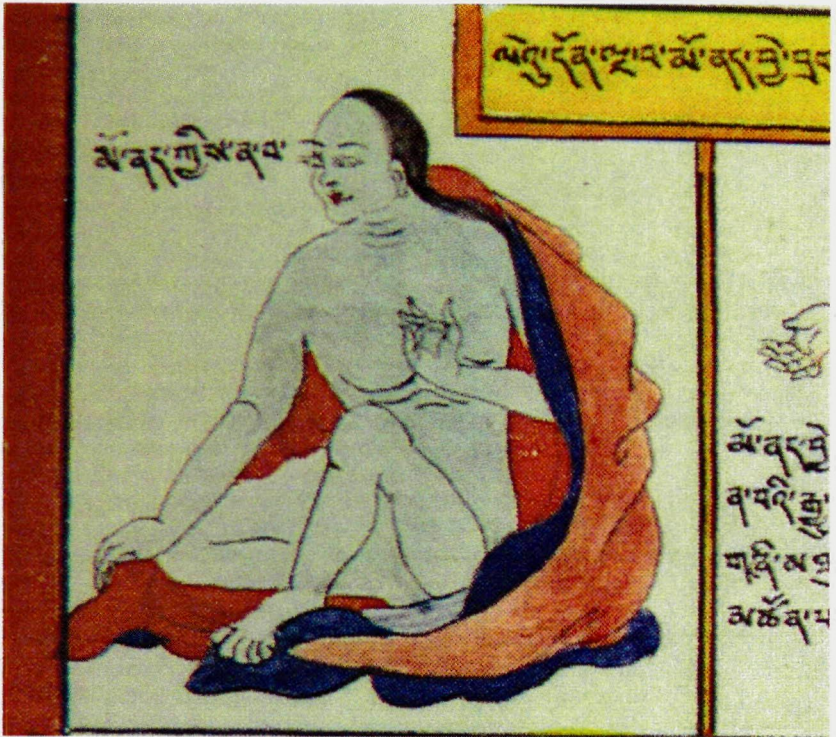 ལེའུ་དོན་ལྔ་པ་མོ་ནད་ཕྱེ་
མོ་ནད་ཀྱིས་ན་བ་
མོ་ནད་ཕྱེ
ན་པའི་
གཞི་མ་
མཚོན་པ